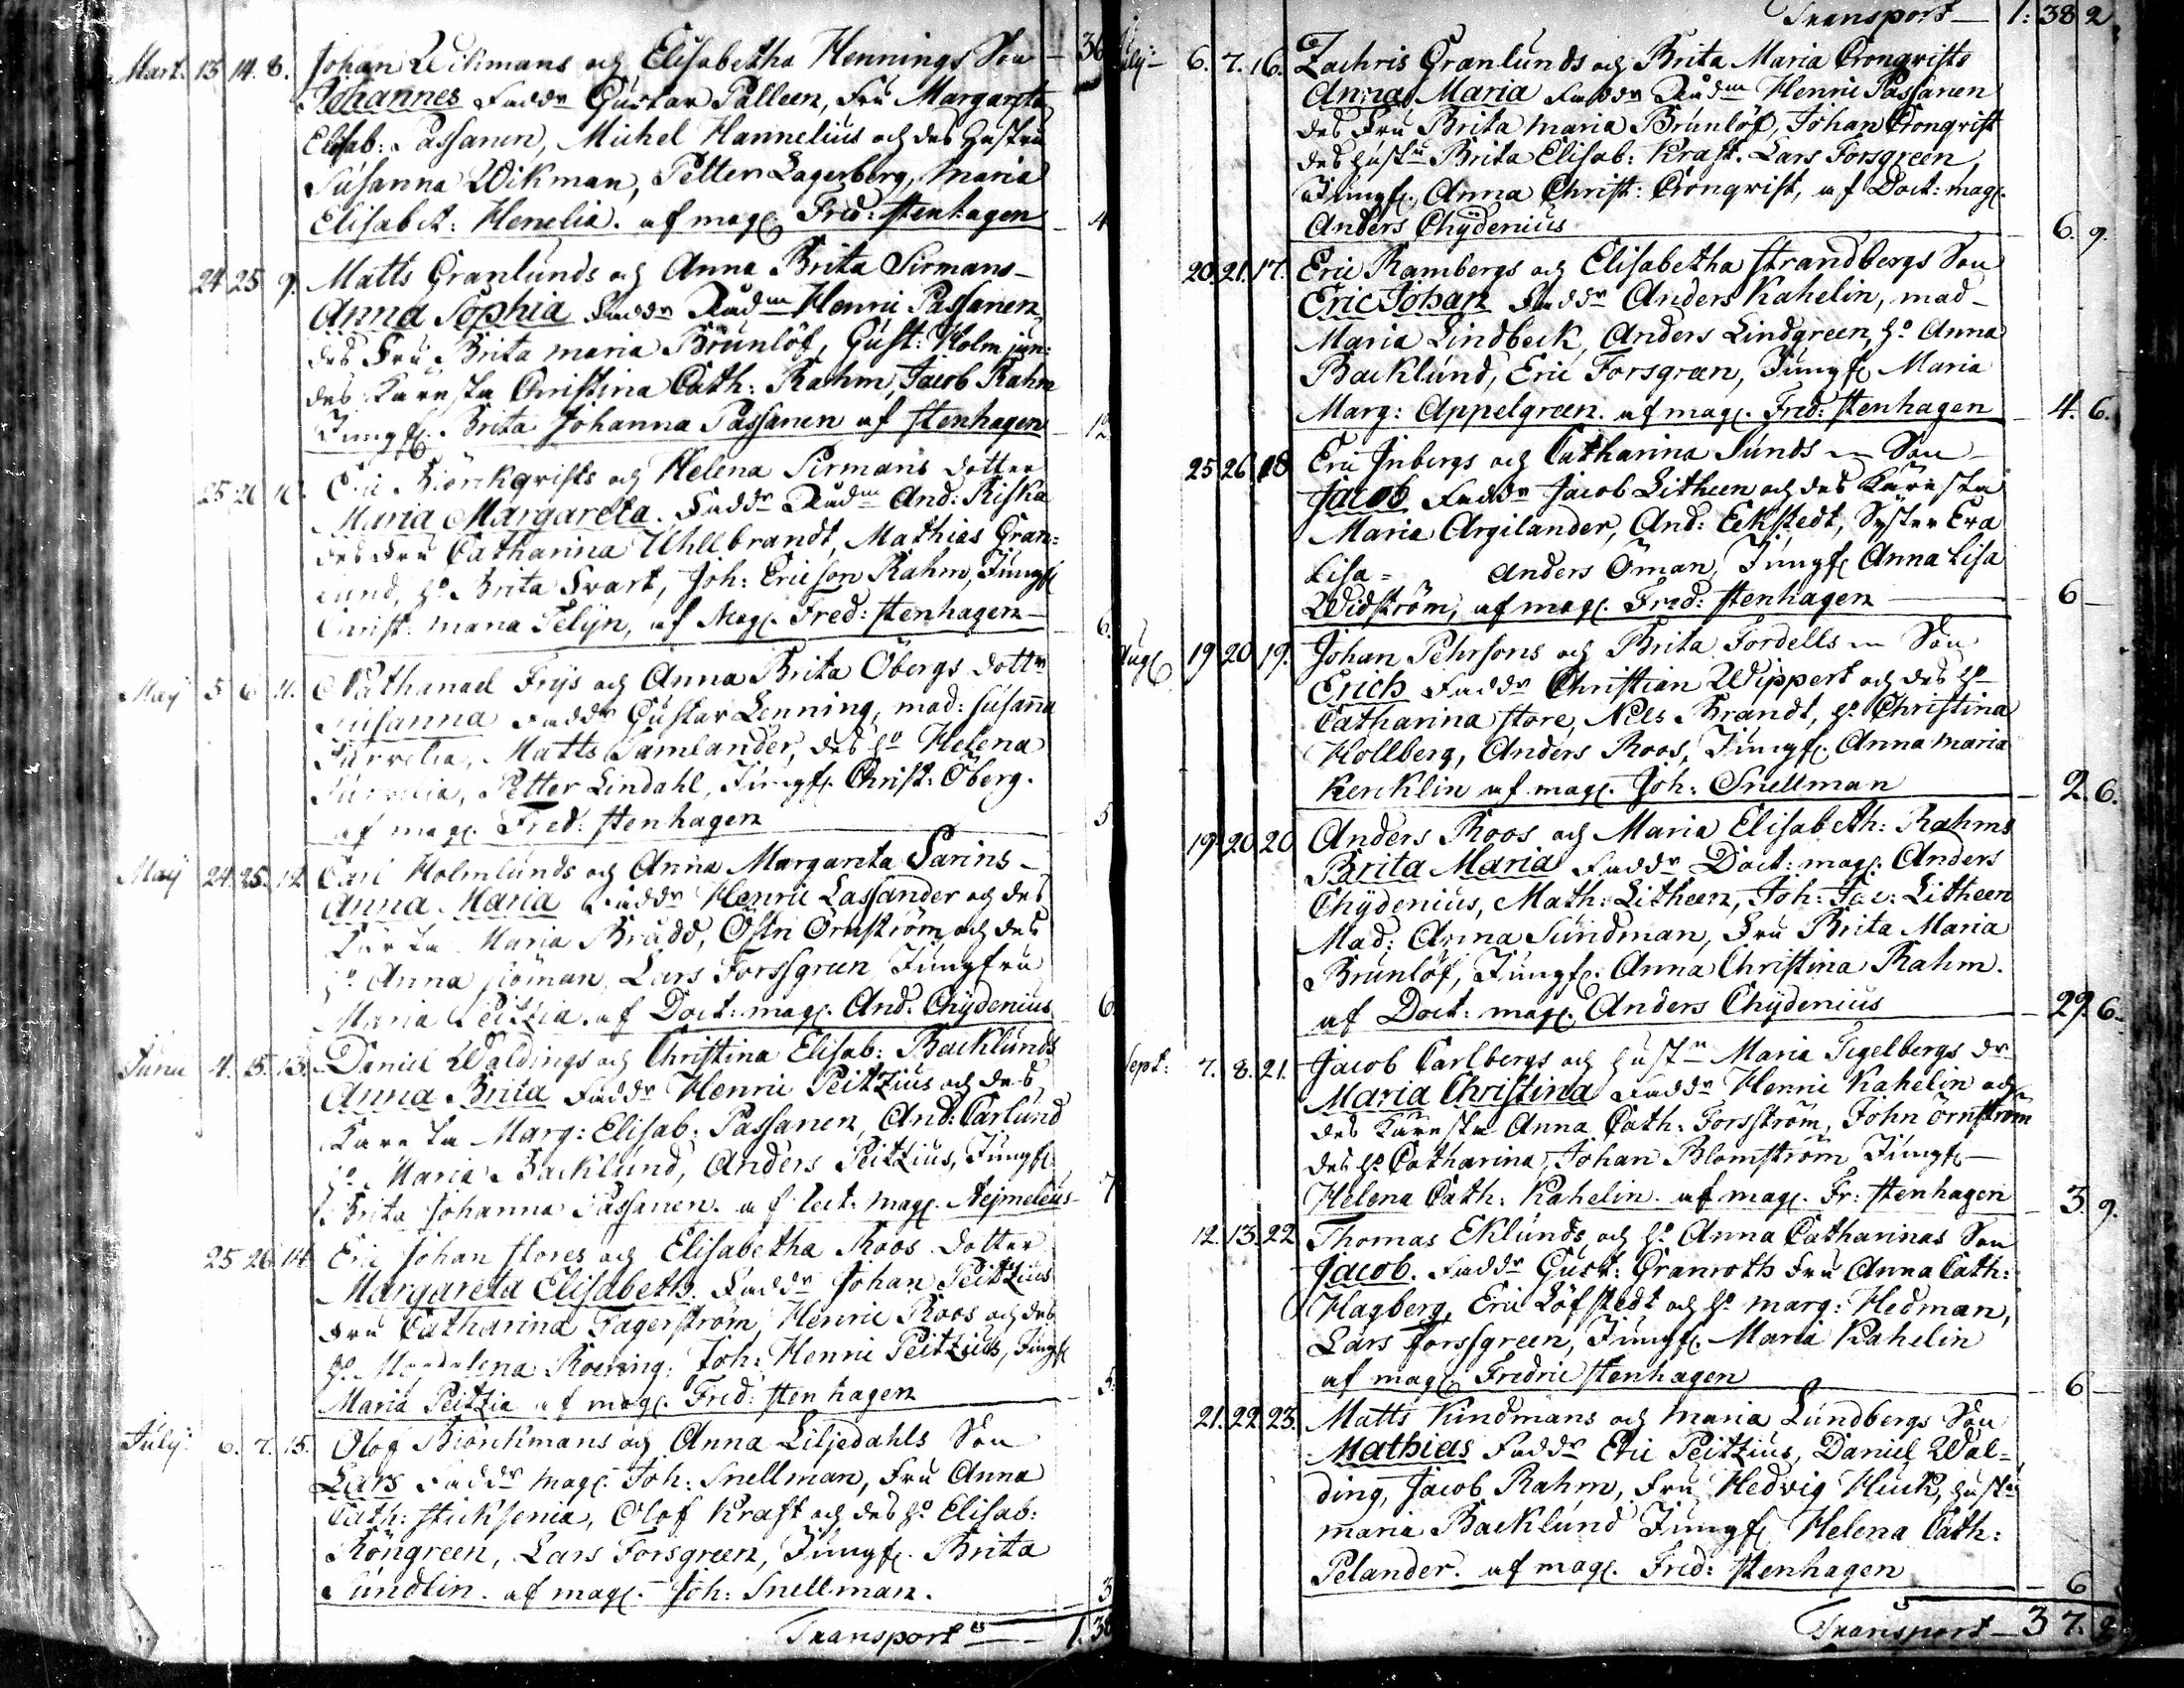 Mart. 13 14. 8. Johan Wikmans och Elisabetha Hennings Son 36
Johannes Faddr Gustav Palleen, Fru Margareta
Elisab: Passanen, Michel Hannelius och des Hustru
Susanna Wikman, Petter Lagerberg, Maria
Elisabet: Henelia. af mag. Fred: Stenhagen 4
24 25 9. Matts Granlunds och Anna Brita Sirmans
Anna Sophia Faddr Rådm Henric Passanen
des Fru Brita Maria Brunlöf, Gust: Holm jun:
des Käresta Christina Cath: Rahm, Jacob Rahm
Jungf. Brita Johanna Passanen af Stenhagen 12
25 26 10. Eric Biörckqvists och Helena Sirmans dotter
Maria Margareta. Faddr Rådm And: Riska
des Fru Catharina Uhllbrandt, Mathias Gran=
lund, h. Brita Svart, Joh: Ericson Rahm, Jungf
Christ: Maria Telijn, af Mag. Fred: Stenhagen 6.
Maij 5 6 11. Nathanael Frijs och Anna Brita Öbergs dottr
Susanna Faddr Gustav Lenning, mad: Susanna
Matts Samlander, des ho Helena
Petter Lindahl, Jungf. Christ: Öberg.
af mag. Fred: Stenhagen 5
Maij 24 25. 12 Carl Holmlunds och Anna Margareta Sarins
Anna Maria Faddr Henric Lassander och des
Maria Brådd, Örnström och des
ho Anna Lars Forssgreen Jungfru
Maria Peitzia. af Doct: mag. And: Chydenius 6
Junii 4. 5. 13. Daniel Waldings och Christina Elisab: Backlunds
Anna Brita Faddr Henric Peitzius och des
Käresta Marg: Elisab: Passanen, And: Carlund
ho Maria Backlund, Anders Peitzius, Jungf
Brita Johanna Passanen. af lect: mag. Aejmeleus 7
25 26 14 Eric Johan Stores och Elisabetha Roos dotter
Margareta Elisabeth. Faddr Johan Peitzius
Fru Catharina Fagerström, Henric Roos och des
ho Magdalena Roering. Joh: Henric Peitzius, Jungf
Maria Peitzia af mag. Fred: Stenhagen 5.
July 6. 7. 15. Olof Biörckmans och Anna Liljedahls Son
Lars Faddr Mag. Joh: Snellman, Fru Anna
Cath: Sticksenia, Olof Kraft och des ho Elisab:
Röngreen, Lars Forsgreen, Jungf. Brita
Sundlin. af mag. Joh: Snellman. 3
Transport 1. 38
Transport 1: 38 2
July 6. 7. 16. Zachris Granlunds och Brita Maria Cronqvists
Anna Maria Faddr Rådm Henric Passanen
des Fru Brita Maria Brunlöf, Johan Cronqvist
des hustu Brita Elisab: Kraft. Lars Forsgreen
Jungf. Anna Christ: Cronqvist, af Doct: mag.
Anders Chydenius 6. 9.
20. 21. 17. Eric Rambergs och Elisabetha Strandbergs Son
Eric Johan Faddr Anders Kahelin, mad
Maria Lindbeck, Anders Lindgreen, ho Anna
Backlund, Eric Forsgren, Jungf. Maria
Marg: Appelgreen. af mag. Fred: Stenhagen 4. 6.
25 26 18 Eric Inbergs och Catharina Sunds Son
Jacob Faddr Jacob Litheen och des Käresta
Maria Argilander, And: Eckstedt, Syster Eva
Lisa = Anders Öman, Jungf Anna Lisa
Widström, af mag. Fred: Stenhagen 6
Aug 19 20 19. Johan Pehrsons och Brita Fordells Son
Erich Faddr Christian Wippert och des ho
Catharina Store, Nils Brandt, ho Christina
Hollberg, Anders Roos, Jungf. Anna Maria
Kercklin af mag. Joh: Snellman 2. 6.
19 20 20 Anders Roos och Maria Elisabeth: Rahms
Brita Maria Faddr Doct: mag. Anders
Chydenius, Math: Litheen, Joh: Jac: Litheen
Mad: Anna Sundman, Fru Brita Maria
Brunlöf, Jungf. Anna Christina Rahm.
af Doct: mag. Anders Chydenius 29. 6.
Sept: 7. 8. 21. Jacob Carlbergs och hustru Maria Tegelbergs dr
Maria Christina Faddr Henric Kahelin och
des Käresta Anna Cath: Forsström, John Örnström
des ho Catharina, Johan Blomström Jungf
Helena Cath: Kahelin. af mag. Fr: Stenhagen 3. 9.
12. 13. 22 Thomas Eklunds och ho Anna Catharinas Son
Jacob. Faddr Gust: Granroth Fru Anna Cath:
Hagberg, Eric Löfstedt och ho Marg: Hedman,
Lars Forssgreen, Jungf. Maria Kahelin
af mag. Fredric Stenhagen 6
21. 22. 23. Matts Kindmans och Maria Lundbergs Son
Mathias Faddr Eric Peitzius, Daniel Wal=
ding, Jacob Rahm, Fru Hedvig Huck, hustru
Maria Backlund Jungf Helena Cath:
Pelander. af mag. Fred: Stenhagen 6
Transport 3 7. 2